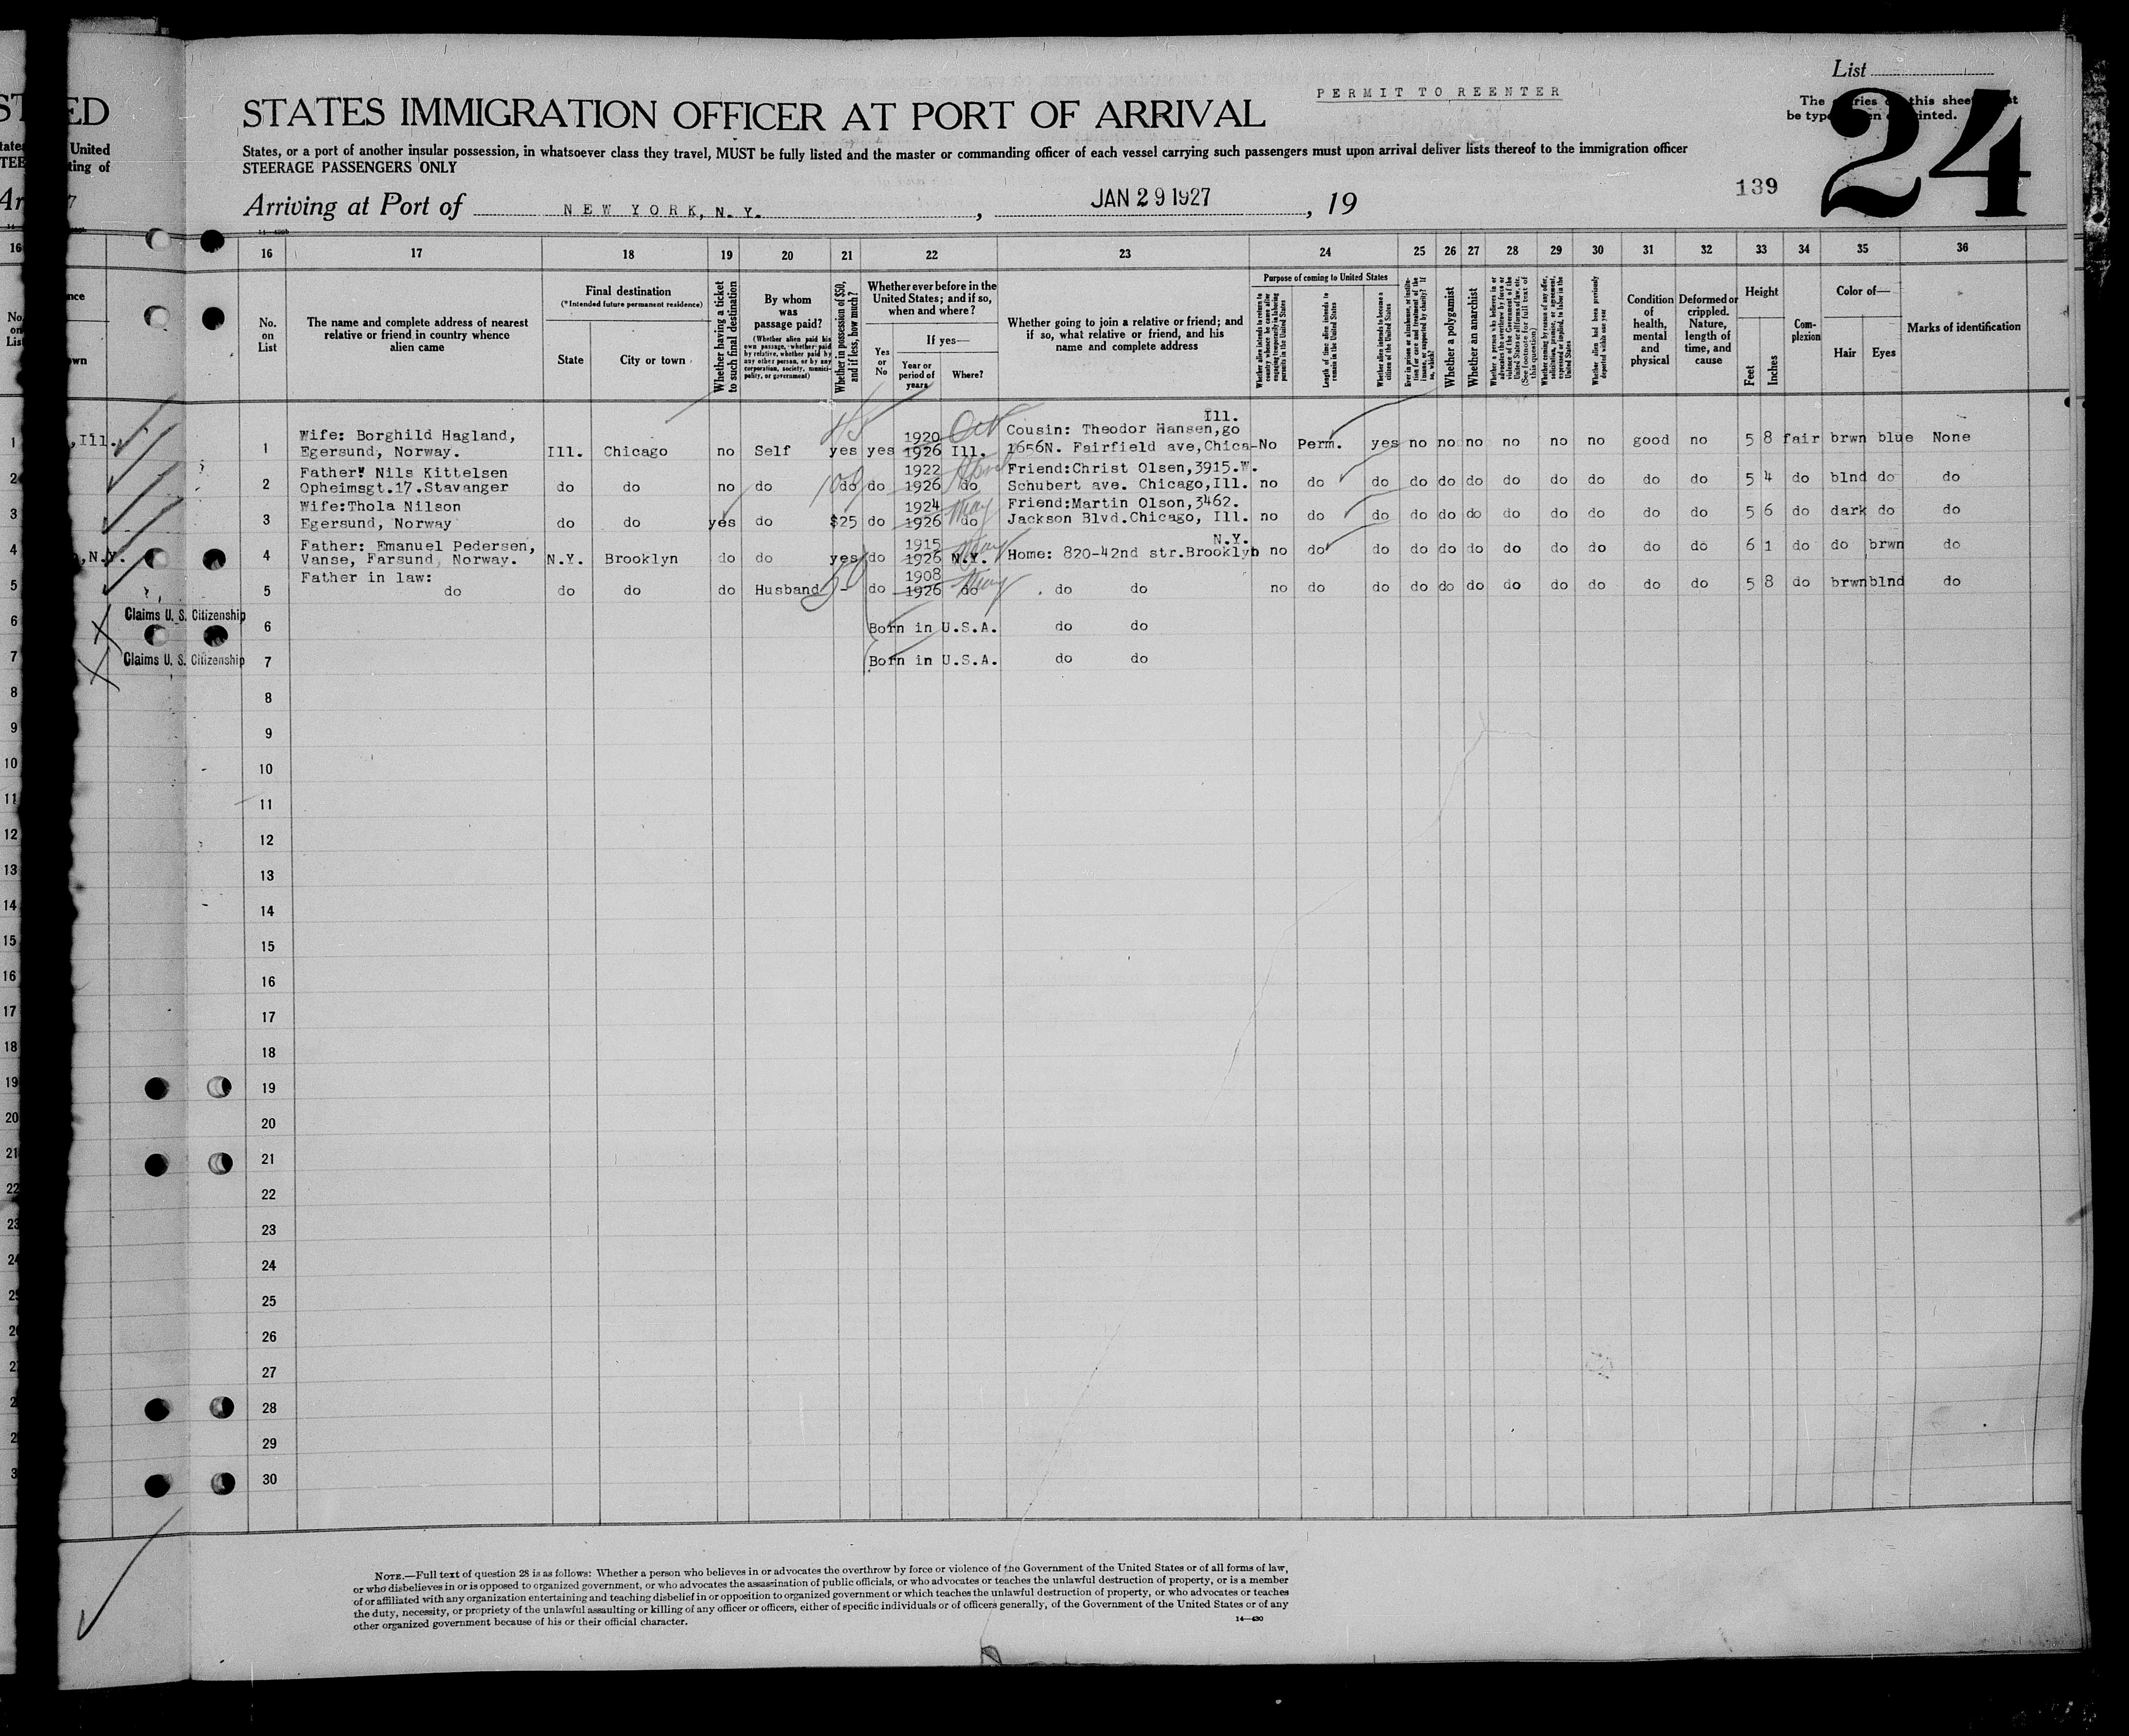 List
PERMIT TO REENTER
STATES IMMIGRATION OFFICER AT PORT OF ARRIVAL
The entries on this sheet must
be typewritten or printed.
24
States, or a port of another insular possession, in whatsoever class they travel, MUST be fully listed and the master or commanding officer of each vessel carrying such passengers must upon arrival deliver lists thereof to the immigration officer
STEERAGE PASSENGERS ONLY
139
Arriving at Port of NEW YORK, N. Y., JAN 29 1927, 19
16 17 18 19 20 21 22 23 24 25 26 27 28 29 30 31 32 33 34 35 36
No. on List
The name and complete address of nearest relative or friend in country whence alien came
Final destination
(*Intended future permanent residence)
State
City or town
Whether having a ticket to such final destination
By whom was passage paid?
(Whether alien paid his own passage, whether paid by relative, whether paid by any other person, or by any corporation, society, municipality, or government)
Whether in possession of $50, and if less, how much?
Whether ever before in the United States; and if so, when and where?
Yes or No
If yes—
Year or period of years
Where?
Whether going to join a relative or friend; and if so, what relative or friend, and his name and complete address
Purpose of coming to United States
Whether alien intends to return to country whence he came after engaging temporarily in laboring pursuits in the United States
Length of time alien intends to remain in the United States
Whether alien intends to become a citizen of the United States
Whether a polygamist
Whether an anarchist
Whether alien had been previously deported within one year
Condition of health, mental and physical
Deformed or crippled. Nature, length of time, and cause
Height
Feet
Inches
Complexion
Color of—
Hair
Eyes
Marks of identification
1 Wife: Borghild Hagland, Egersund, Norway. Ill. Chicago no Self yes yes 1920 1926 Ill. Oct Cousin: Theodor Hansen, 1656N. Fairfield ave,Chica-go Ill. No Perm. yes no no no no no no good no 5 8 fair brwn blue None
45
2 Father: Nils Kittelsen Opheimsgt.17.Stavanger do do no do do do 1922 1926 do Friend:Christ Olsen,3915.W. Schubert ave. Chicago,Ill. no do do do do do do do do do do 5 4 do blnd do do
100
3 Wife:Thola Nilson Egersund, Norway do do yes do $25 do 1924 1926 do May Friend:Martin Olson,3462. Jackson Blvd.Chicago, Ill. no do do do do do do do do do do 5 6 do dark do do
4 Father: Emanuel Pedersen, Vanse, Farsund, Norway. N.Y. Brooklyn do do yes do 1915 1926 N.Y. May Home: 820-42nd str.Brooklyn N.Y. no do do do do do do do do do do 6 1 do do brwn do
50
5 Father in law: do do do do Husband - do 1908 1926 do May do do no do do do do do do do do do do 5 8 do brwn blnd do
Claims U. S. Citizenship
6 Born in U.S.A. do do
Claims U. S. Citizenship
7 Born in U.S.A. do do
8
9
10
11
12
13
14
15
16
17
18
19
20
21
22
23
24
25
26
27
28
29
30
NOTE.—Full text of question 28 is as follows: Whether a person who believes in or advocates the overthrow by force or violence of the Government of the United States or of all forms of law,
or who disbelieves in or is opposed to organized government, or who advocates the assassination of public officials, or who advocates or teaches the unlawful destruction of property, or is a member
of or affiliated with any organization entertaining and teaching disbelief in or opposition to organized government or which teaches the unlawful destruction of property, or who advocates or teaches
the duty, necessity, or propriety of the unlawful assaulting or killing of any officer or officers, either of specific individuals or of officers generally, of the Government of the United States or of any
other organized government because of his or their official character.
14—430